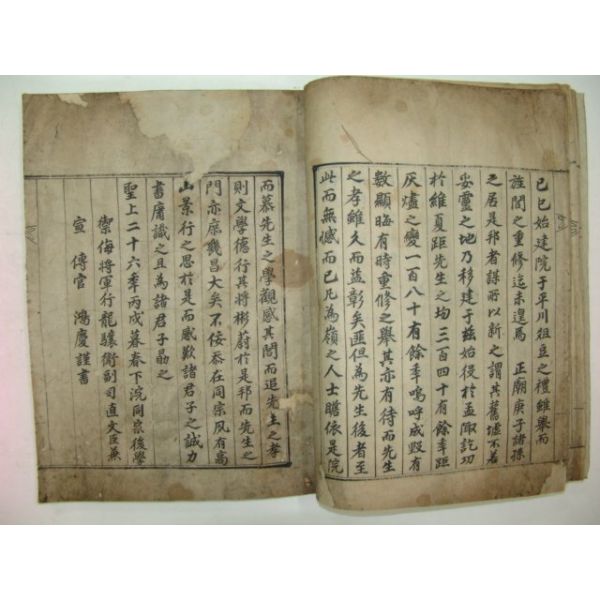 己巳始建院于平川俎豆之禮雖舉而
詮閣之重修迄未遑焉　正廟庚子諸孫
之居是邦者謀所以新之謂其舊墟不若
妥靈之地乃移建于玆始役於孟陬訖功
於維夏距先生之均三百四十有餘年距
灰燼之變一百八十有餘年嗚呼成毁有
數顯晦有時重修之舉其亦有待而先生
之孝雖久而益彰矣匪但為先生後者至
此而無憾而已凡為嶺之人士瞻依是院
而慕先生之學觀感其閭而追先生之孝
則文學德行其將彬蔚於是邦而先生之
門亦庶幾昌大矣不佞忝在同宗夙有高
山景行之思於是而感歎諸君子之誠力
書庸識之且為諸君子勗之
聖上二十六年丙戌暮春下浣同宗後學
禦侮將軍行龍驤衛副司直文臣兼
宣傳官　鴻慶謹書